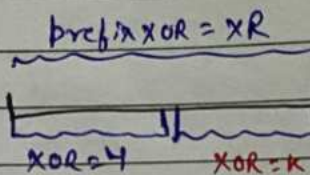 prefix XOR = XR
XOR = 4 XOR = K